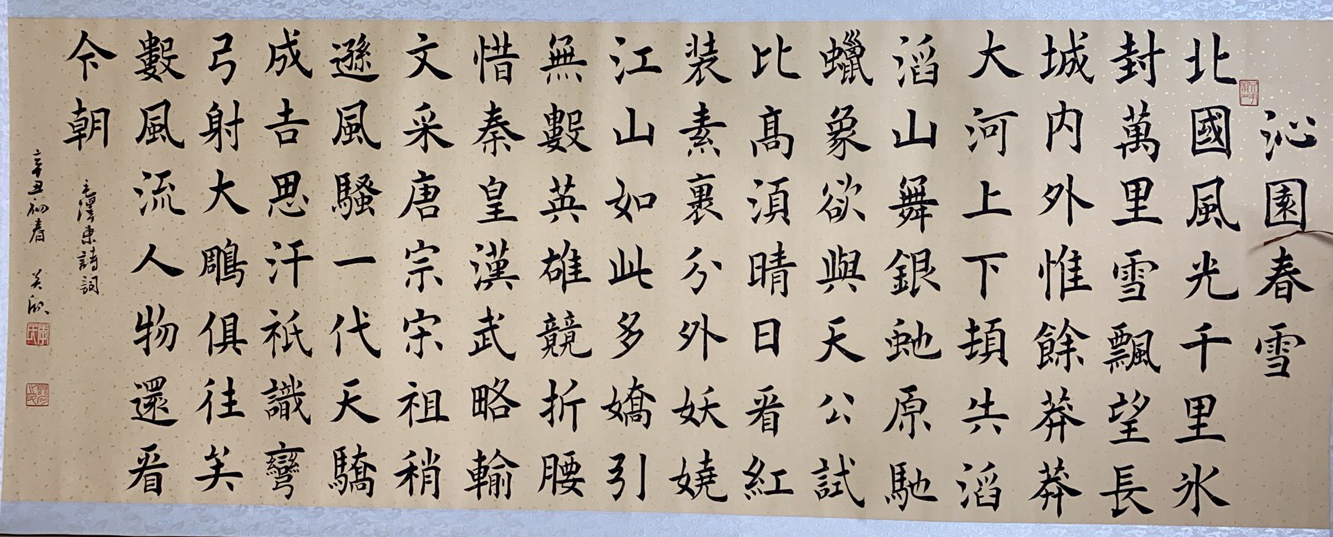 沁園春雪
北國風光千里氷
封萬里雪飄望長
城内外惟餘莽莽
大河上下頓失滔
滔山舞銀虵原馳
蠟象欲與天公試
比髙湏晴日看紅
装素裹分外妖嬈
江山如此多嬌引
無數英雄競折腰
惜秦皇漢武略輸
文采唐宗宋祖稍
遜風騷一代天驕
成吉思汗祇識彎
弓射大鵰俱往矣
數風流人物還看
今朝
毛澤東詩詞
辛丑初春